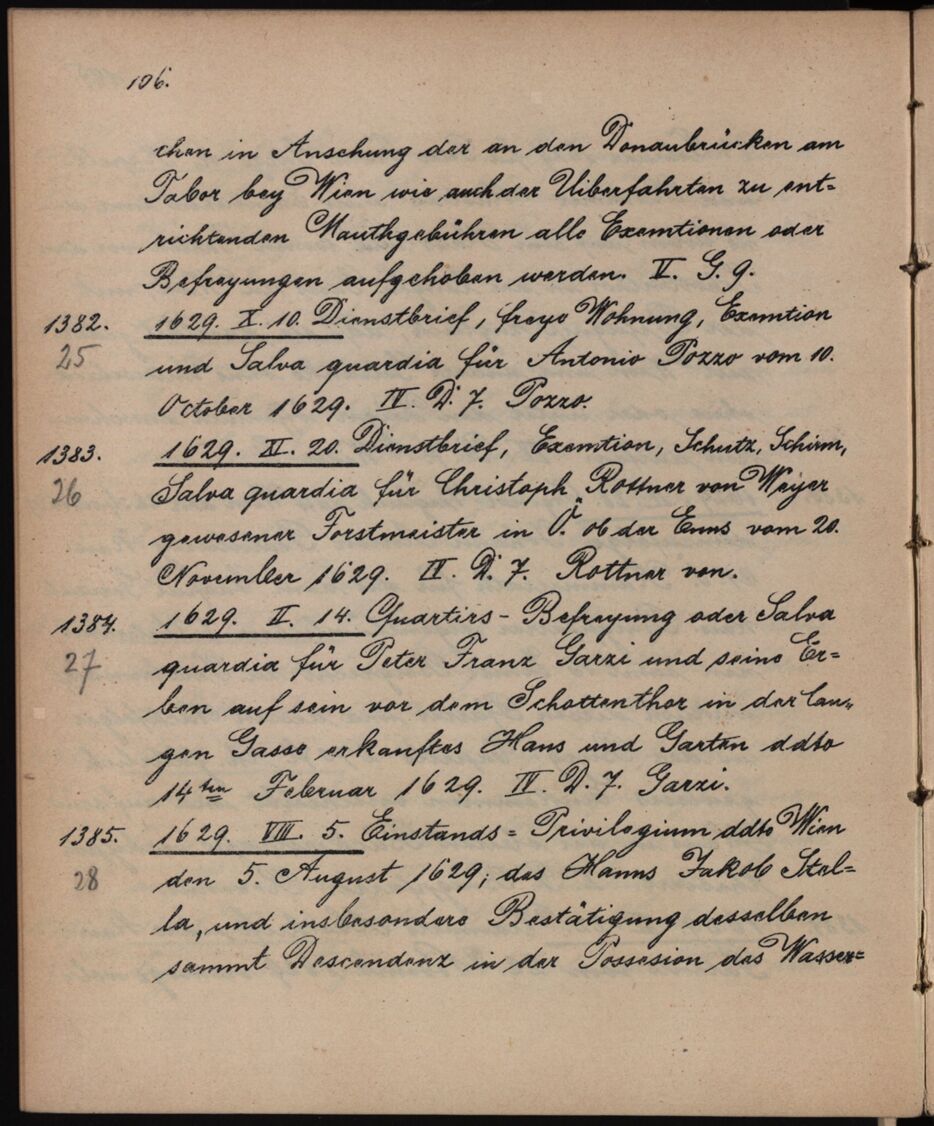 106.
chen in Ansehung der an den Donaubrücken am
Tabor bey Wien wie auch der Uiberfahrten zu ent=
richtenden Mauthgebühren alle Exemtionen oder
Befreyungen aufgehoben werden. V. G. 9.
1382. 1629. X. 10. Dienstbrief, freye Wohnung, Exemtion
25 und Salva guardia für Antonio Pozzo vom 10.
October 1629. IV. D. 7. Pozzo.
1383. 1629. XI. 20. Dienstbrief, Exemtion, Schutz, Schirm,
26 Salva guardia für Christoph Rottner von Weyer
gewesener Forstmeister in Ö. ob der Enns vom 20.
November 1629. IV. D. 7. Rottner von.
1384. 1629. II. 14. Quartirs-Befreyung oder Salva
27 guardia für Peter Franz Garzi und seine Er=
ben auf sein vor dem Schottenthor in der lan=
gen Gasse erkauftes Haus und Garten ddto
14ten Februar 1629. IV. D. 7. Garzi.
1385. 1629. VIII. 5. Einstands=Privilegium ddto Wien
28 den 5. August 1629, des Hanns Jakob Stel=
la, und insbesondere Bestätigung desselben
sammt Descendenz in der Possesion des Wasser=